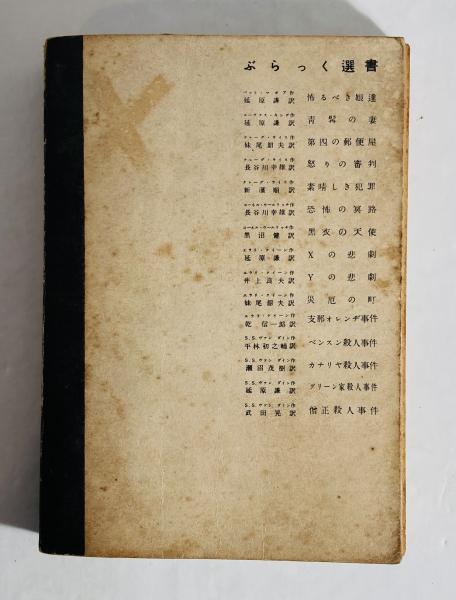 ぶらっく選書
パット・マガア作
延原謙訳 怖るべき娘達
ルーファス・キング作
延原謙訳 青髯の妻
チャーグ・ライス作
妹尾韶夫訳 第四の郵便屋
クレーグ・ライス作
長谷川幸雄訳 怒りの審判
クレーグ・ライス作
新瀬順訳 素晴しき犯罪
コーネル・ウールリッチ作
長谷川幸雄訳 恐怖の冥路
コーネル・ウールリッチ作
黒沼健訳 黒衣の天使
エラリ・クイーン作
延原謙訳 Xの悲劇
エラリ・クイーン作
井上良夫訳 Yの悲劇
エラリ・クイーン作
妹尾韶夫訳 災厄の町
エラリ・クイーン作
乾信一郎訳 支那オレンヂ事件
S.S.ヴァン ダイン作
平林初之輔訳 ベンスン殺人事件
S.S.ヴァン ダイン作
瀬沼茂樹訳 カナリヤ殺人事件
S.S.ヴァン ダイン作
延原謙訳 グリーン家殺人事件
S.S.ヴァン ダイン作
武田晃訳 僧正殺人事件